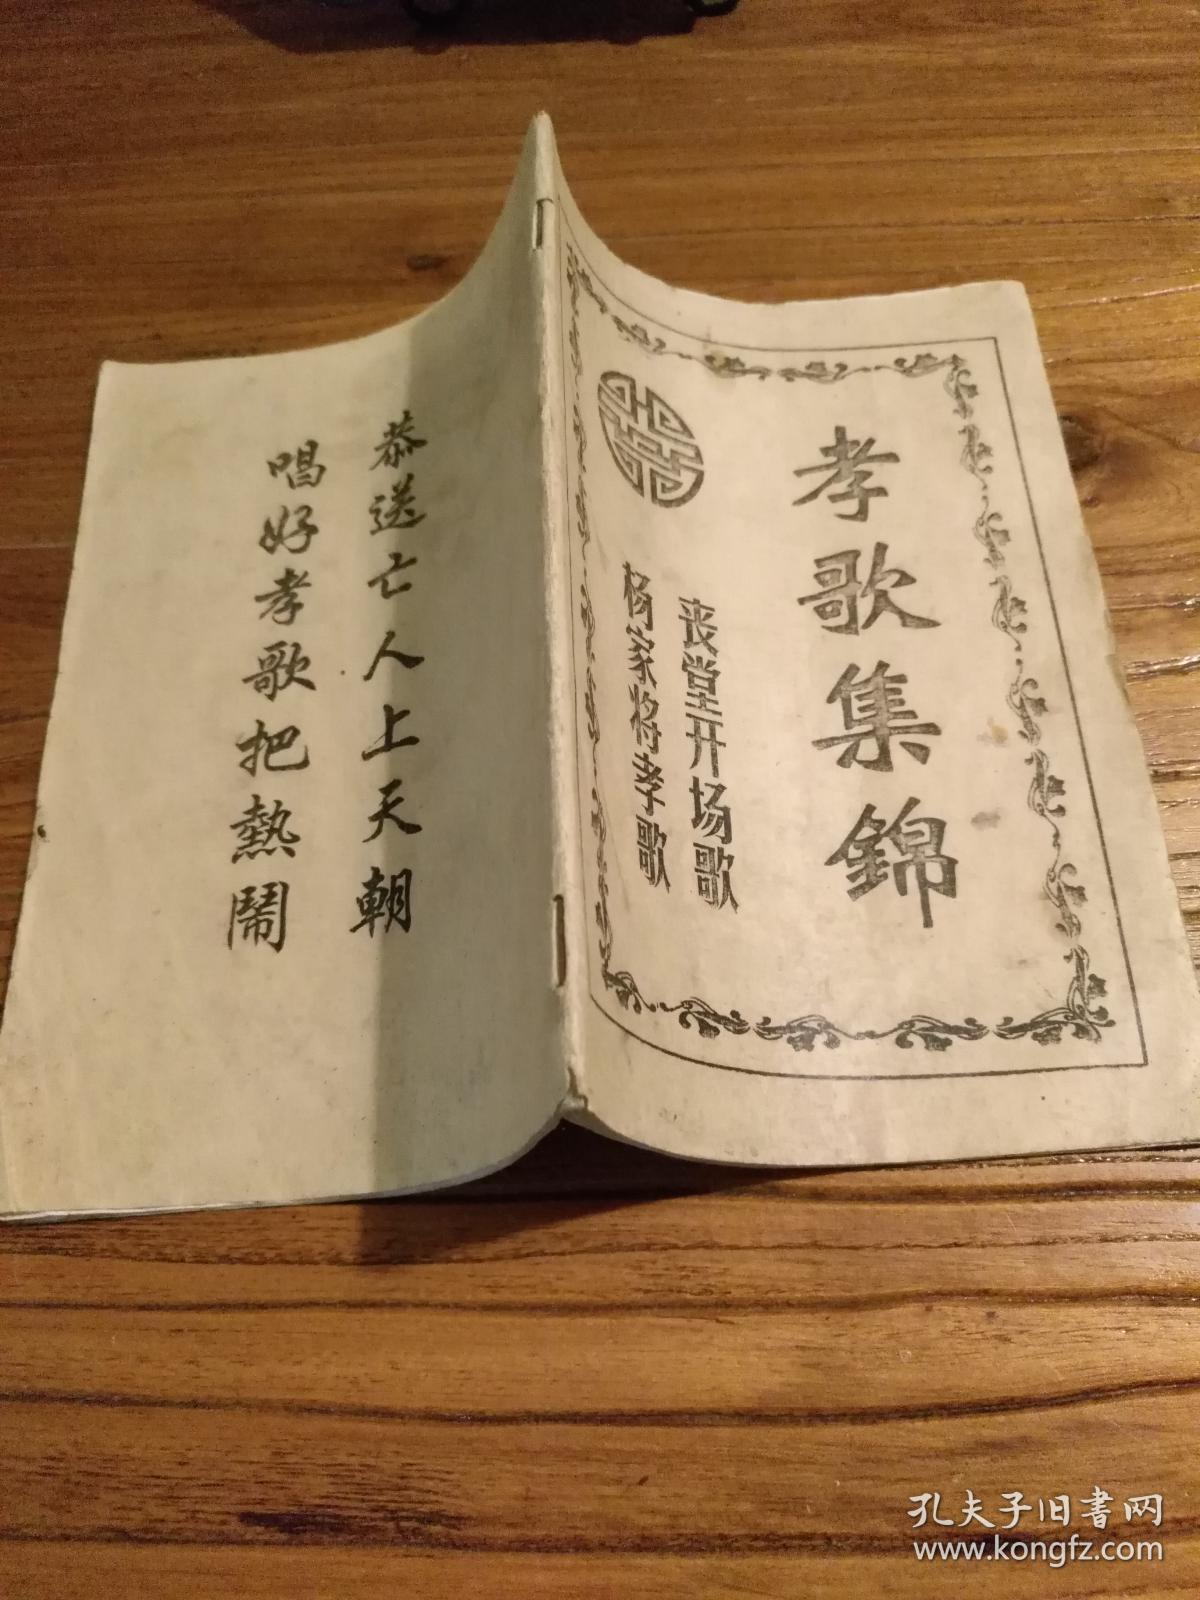 孝歌集錦
丧堂开场歌
杨家将孝歌
恭送亡人上天朝
唱好孝歌把熱鬧
孔夫子旧書网
www.kongfz.com